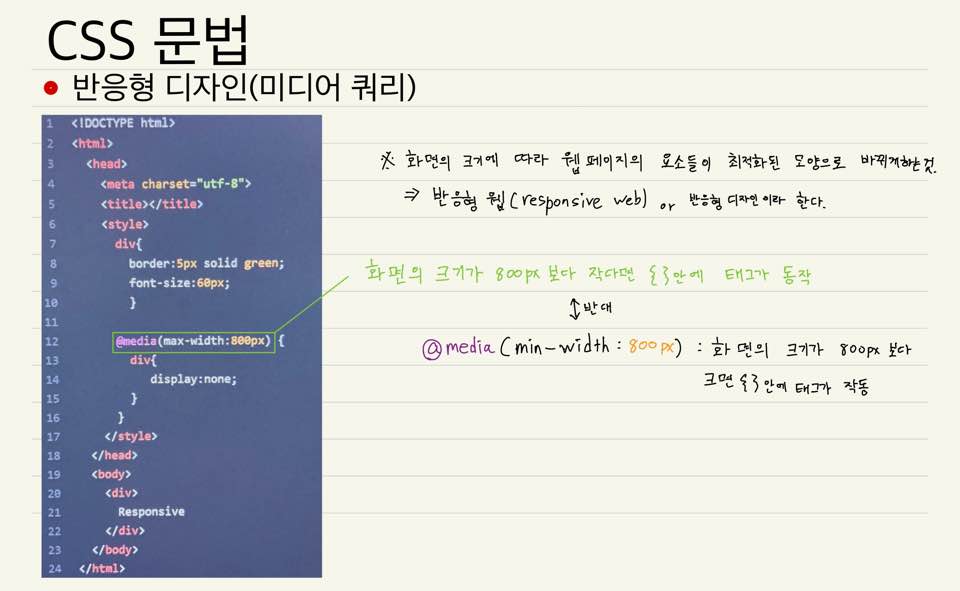 CSS 문법
반응형 디자인(미디어 쿼리)
1 <!DOCTYPE html>
2 <html>
3 <head>
4 <meta charset="utf-8">
5 <title></title>
6 <style>
7 div{
8 border:5px solid green;
9 font-size:60px;
10 }
11
12 @media(max-width:800px) {
13 div{
14 display:none;
15 }
16 }
17 </style>
18 </head>
19 <body>
20 <div>
21 Responsive
22 </div>
23 </body>
24 </html>
※ 화면의 크기에 따라 웹페이지의 요소들이 최적화된 모양으로 바뀌게하는것.
⇒ 반응형 웹(responsive web) or 반응형 디자인이라 한다.
화면의 크기가 800px 보다 작다면 { }안에 태그가 동작
↕ 반대
@media(min-width:800px) : 화면의 크기가 800px 보다
크면 { }안에 태그가 작동